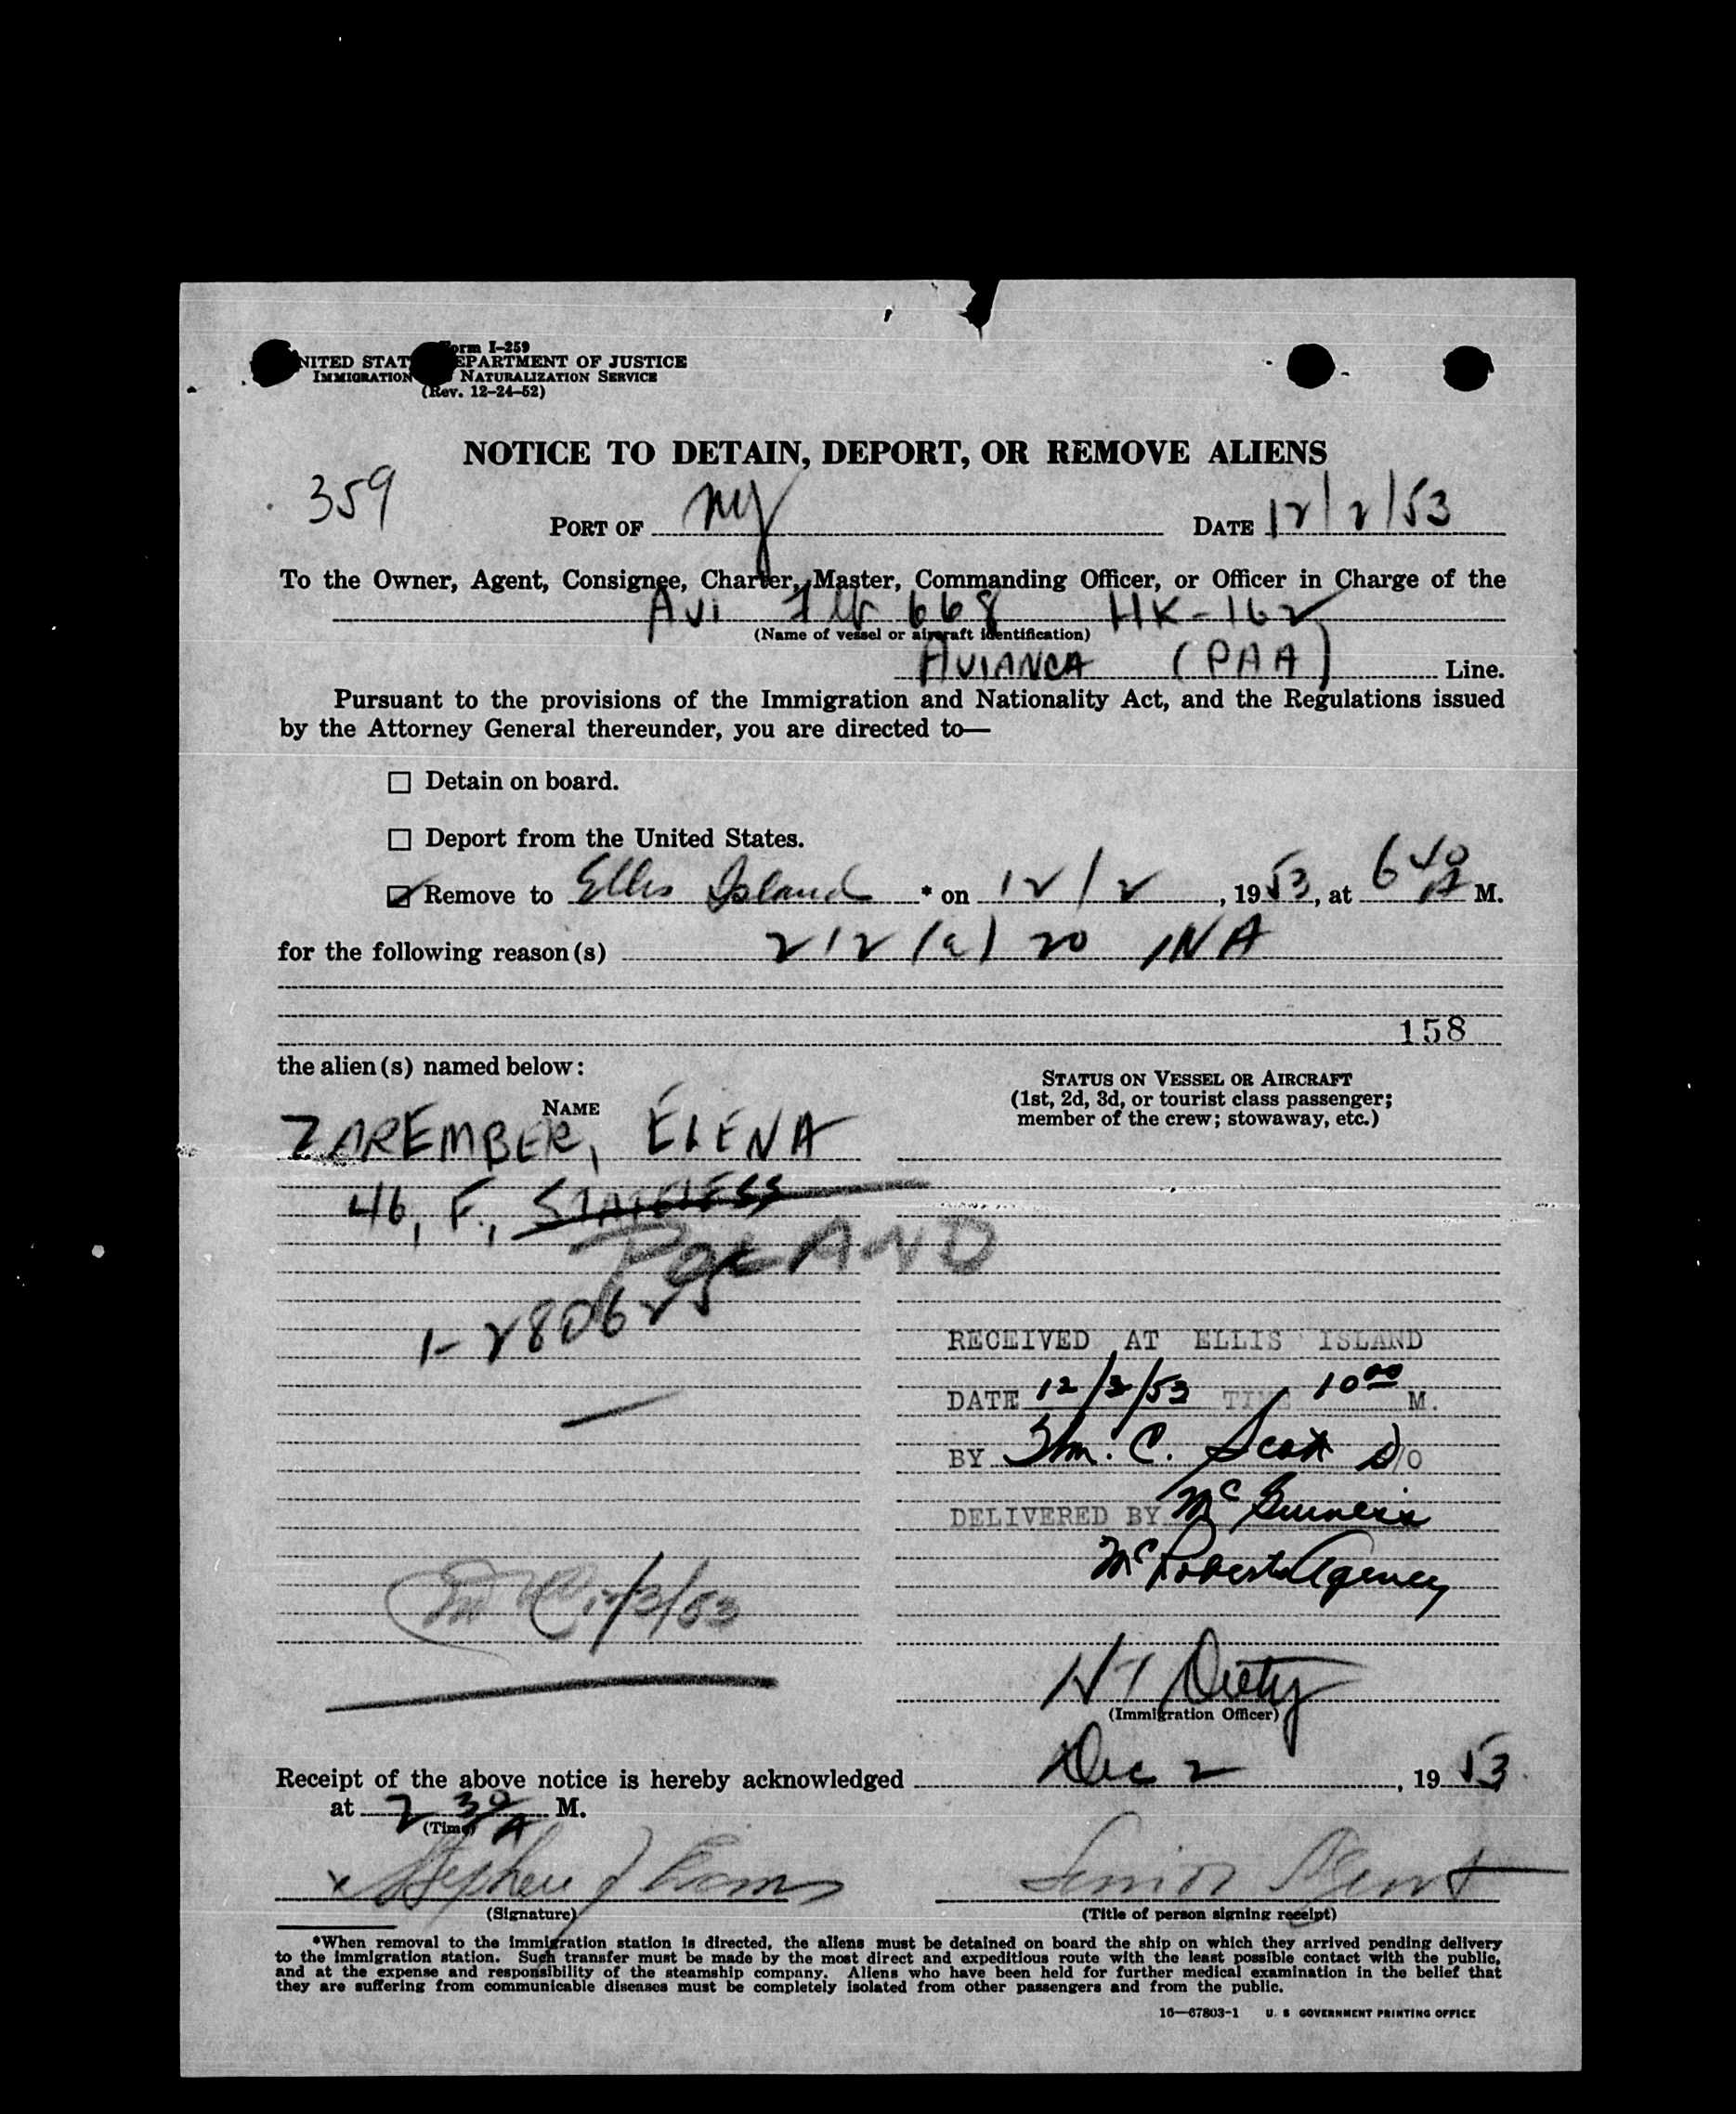 Form I-259
UNITED STATES DEPARTMENT OF JUSTICE
IMMIGRATION NATURALIZATION SERVICE
(Rev. 12-24-52)
NOTICE TO DETAIN, DEPORT, OR REMOVE ALIENS
359
PORT OF NY DATE 12/2/53
To the Owner, Agent, Consignee, Charter, Master, Commanding Officer, or Officer in Charge of the
Avi Flt 668 HK-162
(Name of vessel or aircraft identification)
AVIANCA (PAA) Line.
Pursuant to the provisions of the Immigration and Nationality Act, and the Regulations issued
by the Attorney General thereunder, you are directed to—
☐ Detain on board.
☐ Deport from the United States.
☑ Remove to Ellis Island * on 12/2, 1953, at 640 A M.
for the following reason(s) 212 (a) 20 INA
158
the alien(s) named below:
STATUS ON VESSEL OR AIRCRAFT
(1st, 2d, 3d, or tourist class passenger;
member of the crew; stowaway, etc.)
NAME
ZAREMBER, ELENA
46, F., STATELESS
POLAND
1-280625
RECEIVED AT ELLIS ISLAND
DATE 12/2/53 TIME 10 00 M.
BY Wm. C. Scott D/O
DELIVERED BY McGuiness
McRoberts Agency
/3/53
HT Diety
(Immigration Officer)
Receipt of the above notice is hereby acknowledged Dec 2, 1953
at 7 30 A M.
(Time)
x Stephen J Senior Agent
(Signature) (Title of person signing receipt)
*When removal to the immigration station is directed, the aliens must be detained on board the ship on which they arrived pending delivery
to the immigration station. Such transfer must be made by the most direct and expeditious route with the least possible contact with the public,
and at the expense and responsibility of the steamship company. Aliens who have been held for further medical examination in the belief that
they are suffering from communicable diseases must be completely isolated from other passengers and from the public.
16—67803-1 U. S GOVERNMENT PRINTING OFFICE